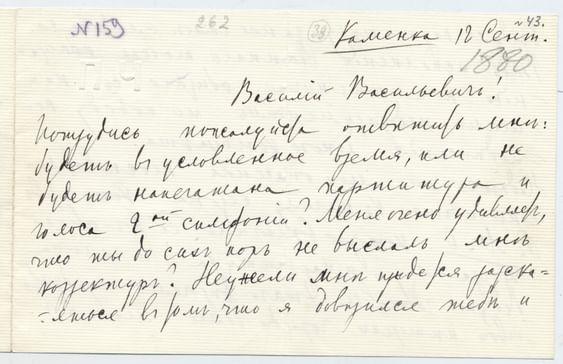 № 159 262 (38) № 43.
Каменка 12 Сент.
1880
Василій Васильевичъ!
Потрудись пожалуйста отвѣтить мнѣ:
будетъ въ условленное время, или не
будетъ напечатана партитура и
голоса 2ой симфоніи? Меня очень удивляетъ,
что ты до сихъ поръ не выслалъ мнѣ
корректуръ? Неужели мнѣ придется раска-
-яться въ томъ, что я довѣрился тебѣ и